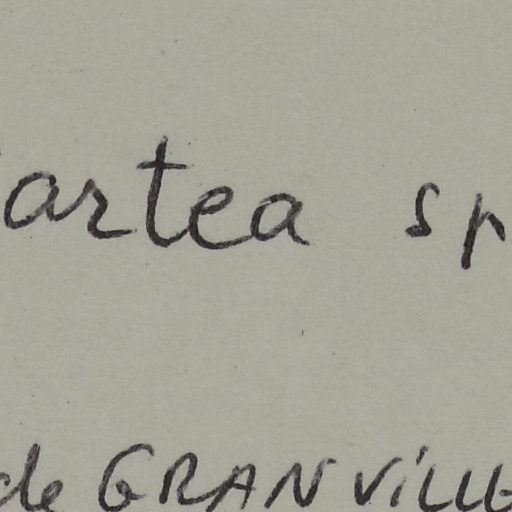 artea sp
de GRANVILLE